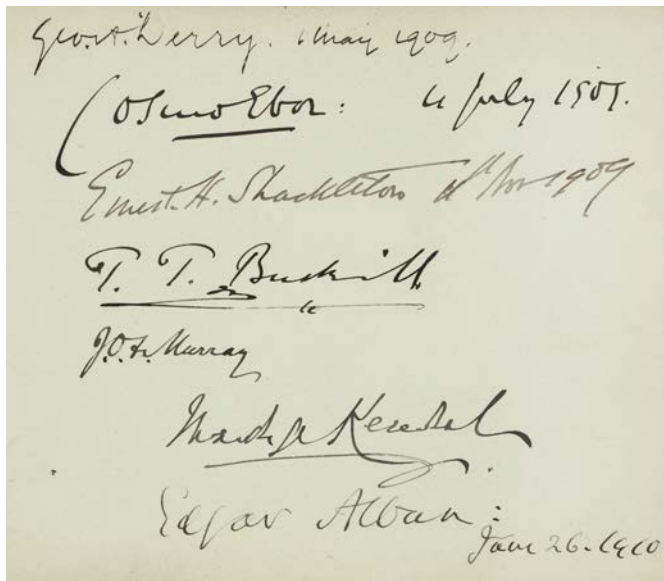 Geo. A. Derry. 1 May 1909.
Cosmo Ebor: 4 July 1909.
Ernest. H. Shackleton Nov 1909
T. T. Bucknill
J. O. F. Murray
Madge Kendal
Edgar Alban:
June 26. 1910